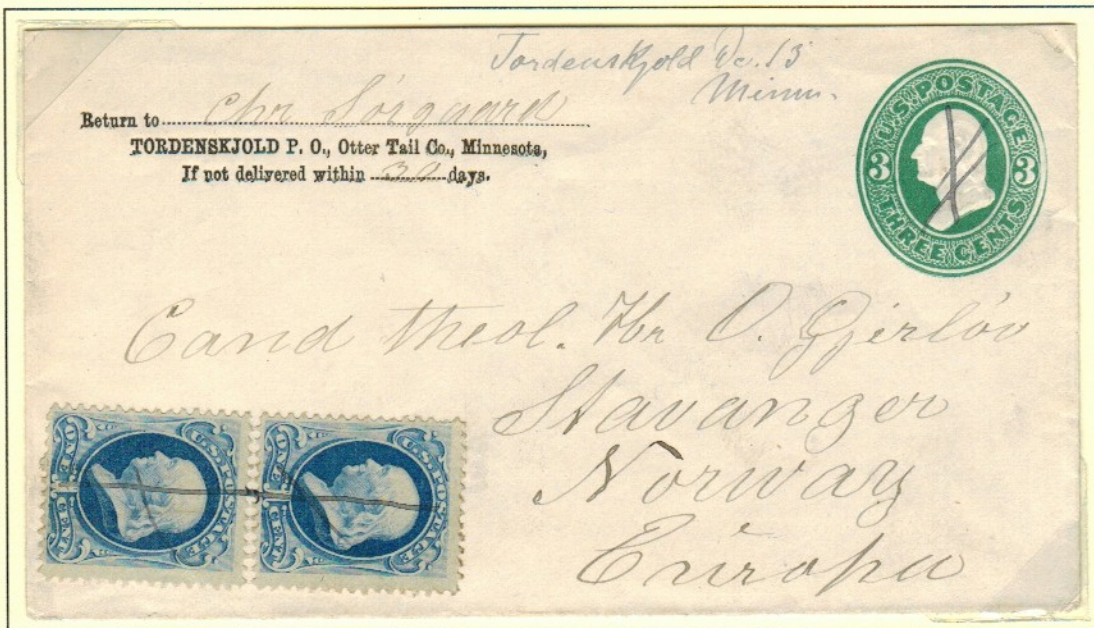 Tordenskjold Dc. 13
Minn.
Return to Chr Sørgaard
TORDENSKJOLD P. O., Otter Tail Co., Minnesota,
If not delivered within 30 days.
U.S. POSTAGE
3 3
THREE CENTS
Cand theol. Hr O. Gjerløv
Stavanger
Norway
Europa
U.S. POSTAGE
ONE CENT
U.S. POSTAGE
ONE CENT